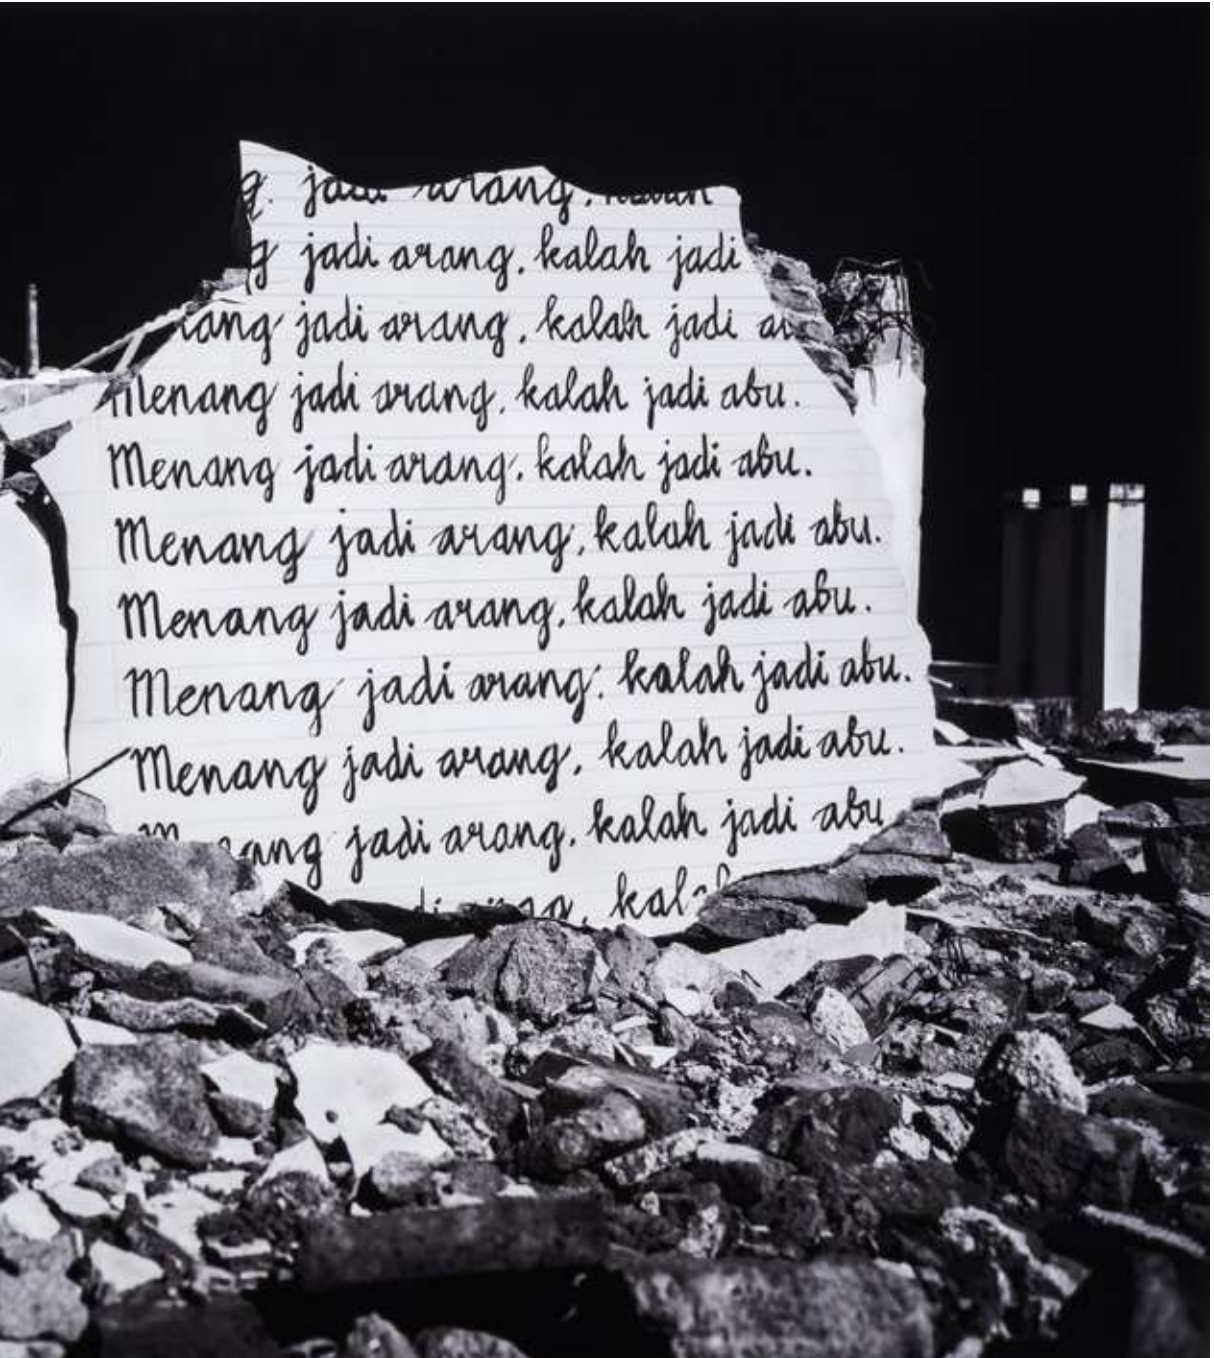 jadi arang, kalah
jadi arang, kalah jadi
jadi arang, kalah jadi
Menang jadi arang, kalah jadi abu.
Menang jadi arang, kalah jadi abu.
Menang jadi arang, kalah jadi abu.
Menang jadi arang, kalah jadi abu.
Menang jadi arang, kalah jadi abu.
Menang jadi arang, kalah jadi abu.
jadi arang, kalah jadi abu